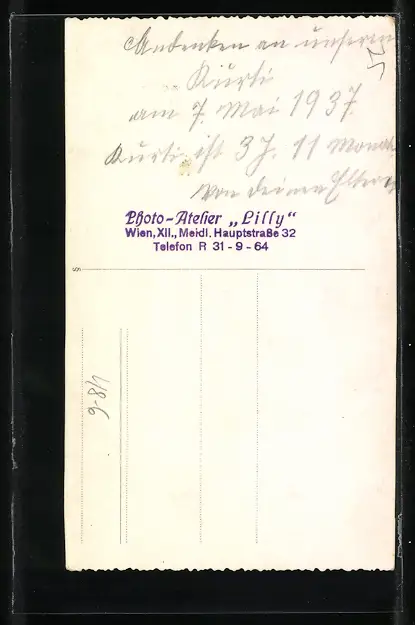 Andenken an unseren
Kurti
am 7. Mai 1937.
Kurti ist 3 J. 11 Monate
Von deinen Eltern
Photo-Atelier „Lilly“
Wien, XII., Meidl. Hauptstraße 32
Telefon R 31-9-64